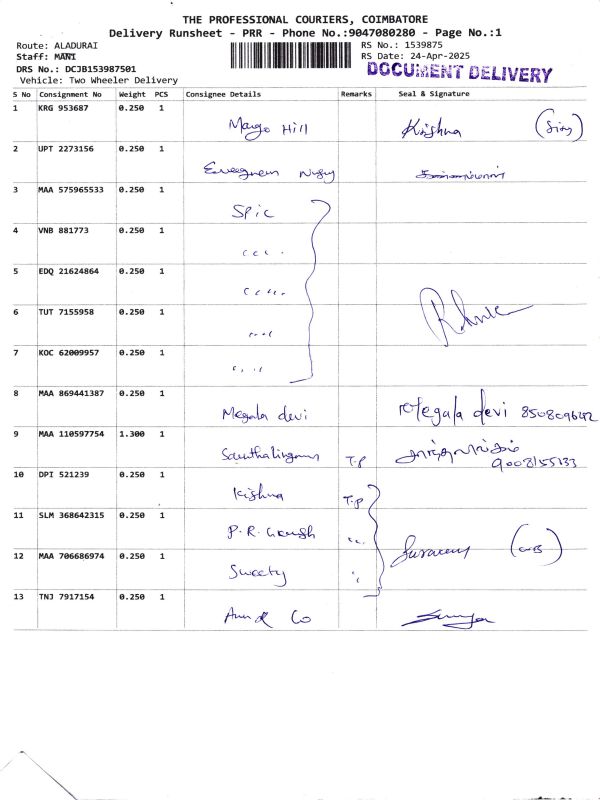 THE PROFESSIONAL COURIERS, COIMBATORE
Delivery Runsheet - PRR - Phone No.:9047080280 - Page No.:1
Route: ALADURAI
RS No.: 1539875
Staff: MANI
RS Date: 24-Apr-2025
DRS No.: DCJB153987501
DOCUMENT DELIVERY
Vehicle: Two Wheeler Delivery
S No Consignment No Weight PCS Consignee Details Remarks Seal & Signature
1 KRG 953687 0.250 1 Margo Hill Krishna
2 UPT 2273156 0.250 1
3 MAA 575965533 0.250 1 SPIC
4 VNB 881773 0.250 1 " "
5 EDQ 21624864 0.250 1 " "
6 TUT 7155958 0.250 1 " "
7 KOC 62009957 0.250 1 " "
8 MAA 869441387 0.250 1 Megala devi Megala devi
9 MAA 110597754 1.300 1 T.P
10 DPI 521239 0.250 1 Krishna T.P
11 SLM 368642315 0.250 1 P.R. "
12 MAA 706686974 0.250 1 Sweety "
13 TNJ 7917154 0.250 1 Co